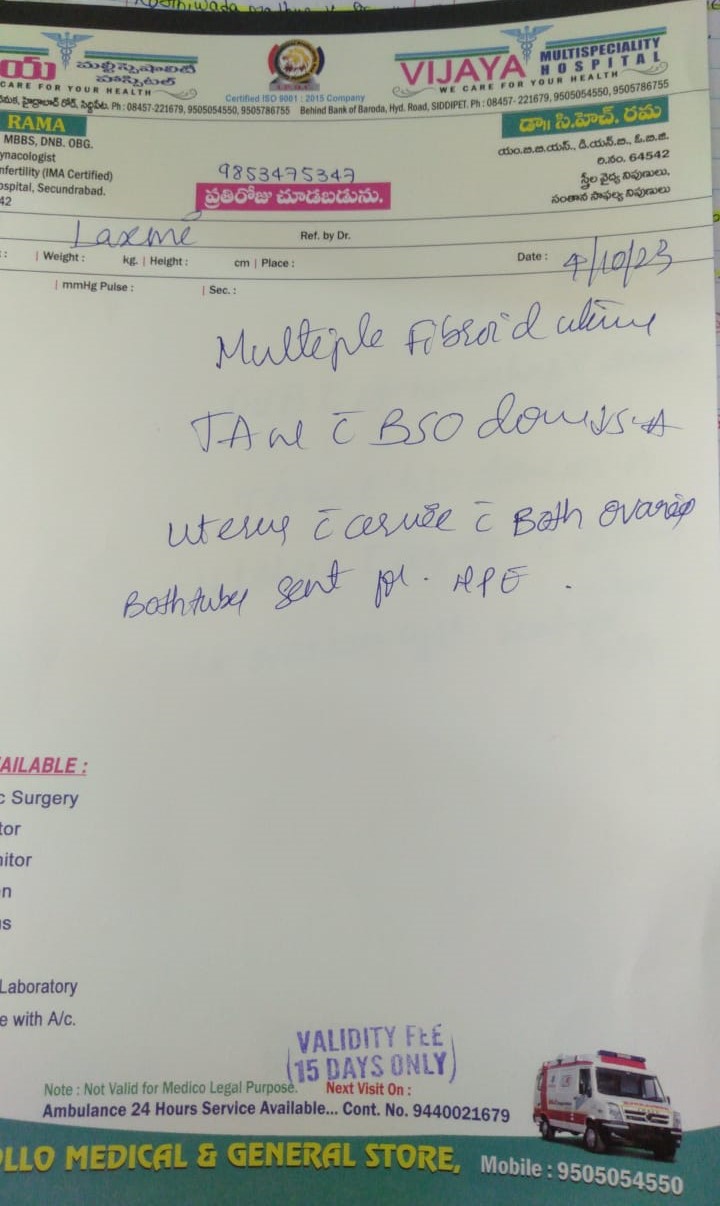 య మల్టీస్పెషాలిటీ హాస్పిటల్
CARE FOR YOUR HEALTH
Certified ISO 9001 : 2015 Company
VIJAYA MULTISPECIALITY HOSPITAL
WE CARE FOR YOUR HEALTH
హైద్రాబాద్ రోడ్, సిద్దిపేట. Ph : 08457-221679, 9505054550, 9505786755 Behind Bank of Baroda, Hyd. Road, SIDDIPET. Ph : 08457- 221679, 9505054550, 9505786755
RAMA
MBBS, DNB. OBG.
ynacologist
nfertility (IMA Certified)
ospital, Secundrabad.
42
9853475347
ప్రతిరోజు చూడబడును.
డా॥ సి.హెచ్. రమ
యం.బి.బి.యస్., డి.యన్.బి., ఓ.బి.జి.
రి.నం. 64542
స్త్రీల వైద్య నిపుణులు,
సంతాన సాఫల్య నిపుణులు
Laxmi Ref. by Dr.
: | Weight : kg. | Height : cm | Place : Date : 4/10/23
| mmHg Pulse : | Sec. :
Multiple Fibroid uterus
TAH c̄ BSO done
Uterus c̄ cervix c̄ Both ovaries
Both tubes sent for. HPE .
AILABLE :
c Surgery
tor
nitor
n
s
Laboratory
e with A/c.
VALIDITY FEE
(15 DAYS ONLY)
Note : Not Valid for Medico Legal Purpose. Next Visit On :
Ambulance 24 Hours Service Available... Cont. No. 9440021679
OLLO MEDICAL & GENERAL STORE, Mobile : 9505054550